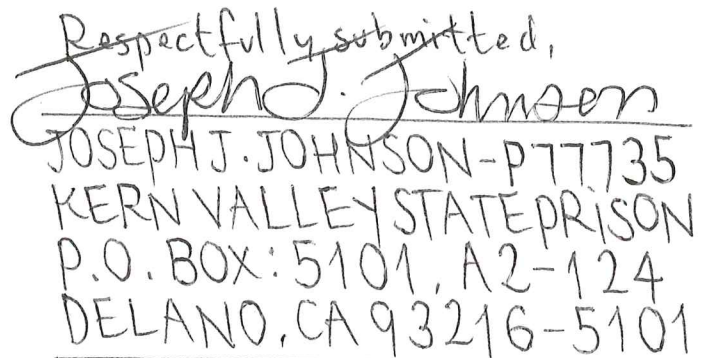 Respectfully submitted,
Joseph J. Johnson
JOSEPH J. JOHNSON-P77735
KERN VALLEY STATE PRISON
P.O. BOX: 5101, A2-124
DELANO, CA 93216-5101